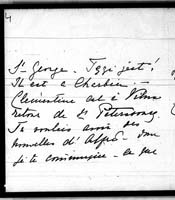 St George. Iggi jest!
Il est à Cherbin -
Clementine est à Vilna
retour de St Petersbourg
Tu voulais avoir des
nouvelles d'Alfred - donc
je te communique - ce que